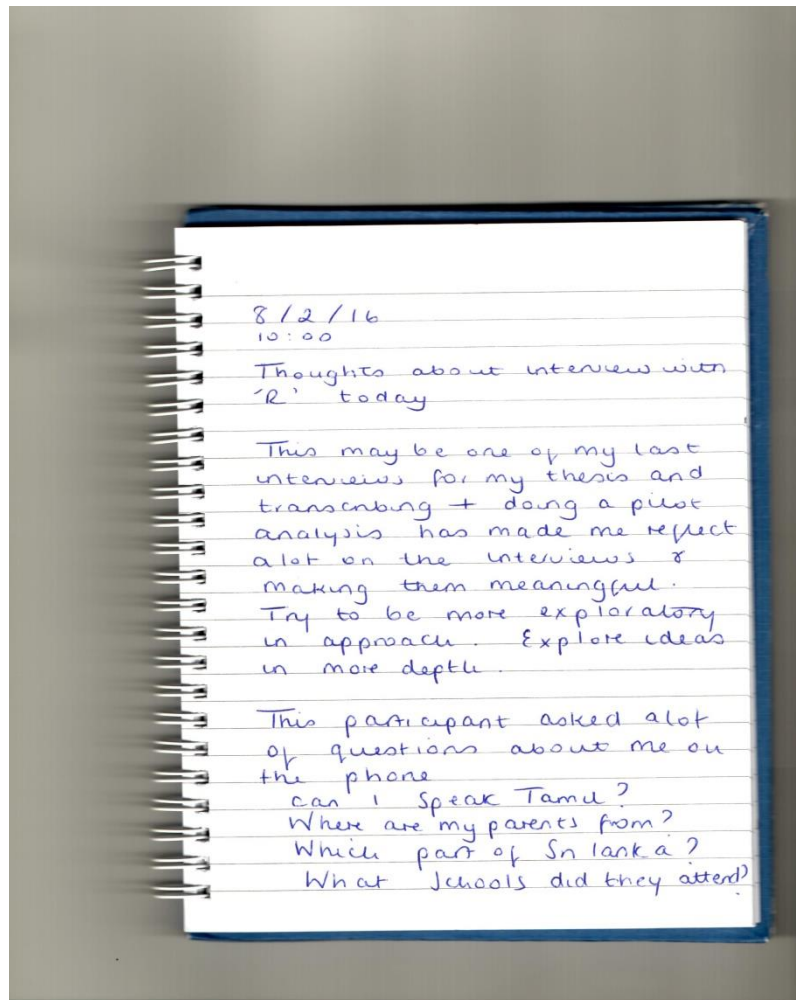 8/2/16
10:00
Thoughts about interview with
'R' today
This may be one of my last
interviews for my thesis and
transcribing + doing a pilot
analysis has made me reflect
alot on the interviews &
making them meaningful.
Try to be more exploratory
in approach. Explore ideas
in more depth.
This participant asked alot
of questions about me on
the phone
can I speak Tamil?
Where are my parents from?
Which part of Sri lanka?
What Schools did they attend?